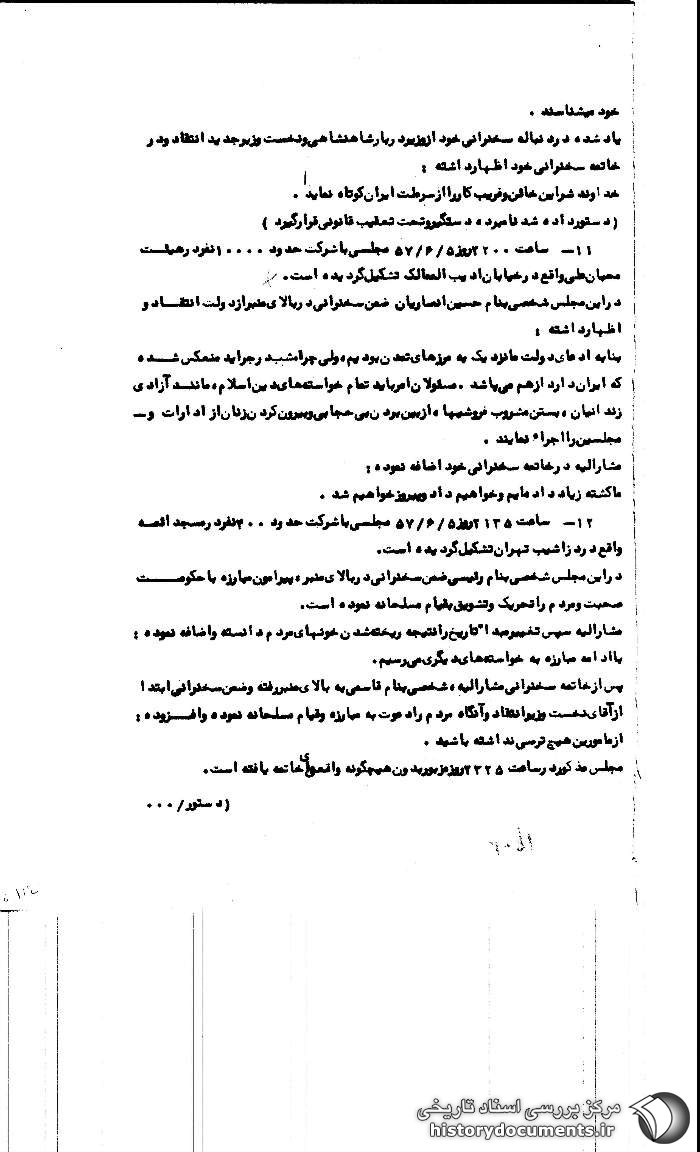 خود میشناسند .
یاد شده در دنباله سخنرانی خود از وزیر دربار شاهنشاهی و نخست وزیر جدید انتقاد و در
خاتمه سخنرانی خود اظهار داشته :
خداوند شر این خائن و فریب کار را از سر ملت ایران کوتاه نماید .
( دستور داده شد نامبرده دستگیر و تحت تعقیب قانونی قرار گیرد )
۱۱ــ ساعت ۲۲۰۰ روز ۵۷/۶/۵ مجلسی با شرکت حدود ۱۰۰۰۰ نفر در هیئت
محبان علی واقع در خیابان ادیب الممالک تشکیل گردیده است .
در این مجلس شخصی بنام حسین انصاریان ضمن سخنرانی در بالای منبر از دولت انتقاد و
اظهار داشته :
بنا به ادعای دولت ما نزدیک به مرزهای تمدن بودیم ، ولی چرا مشبد در جراید منعکس شده
که ایران دارد از هم می پاشد . مسئولان امر باید تمام خواسته های دین اسلام ، مانند آزادی
زندانیان ، بستن مشروب فروشیها ، از بین بردن بی حجابی و بیرون کردن زنان از ادارات و ــ
مجلسین را اجراء نمایند .
مشارالیه در خاتمه سخنرانی خود اضافه نموده :
ما کشته زیاد داده ایم و خواهیم داد و پیروز خواهیم شد .
۱۲ــ ساعت ۲۱۳۵ روز ۵۷/۶/۵ مجلسی با شرکت حدود ۳۰۰ نفر در مسجد ائمه
واقع در دزاشیب تهران تشکیل گردیده است .
در این مجلس شخصی بنام رئیسی ضمن سخنرانی در بالای منبر ، پیرامون مبارزه با حکومت
صحبت و مردم را تحریک و تشویق بقیام مسلحانه نموده است .
مشارالیه سپس تغییر مبداء تاریخ را نتیجه ریخته شدن خونهای مردم دانسته و اضافه نموده :
با ادامه مبارزه به خواسته های دیگری می رسیم .
پس از خاتمه سخنرانی مشارالیه ، شخصی بنام قاسمی به بالای منبر رفته و ضمن سخنرانی ابتدا
از آقای نخست وزیر انتقاد و آنگاه مردم را دعوت به مبارزه و قیام مسلحانه نموده و افزوده :
از مامورین هیچ ترسی نداشته باشید .
مجلس مذکور در ساعت ۲۳۲۵ روز مزبور بدون هیچگونه واقعه ای خاتمه یافته است .
( دستور / ۰۰۰
مرکز بررسی اسناد تاریخی
historydocuments.ir